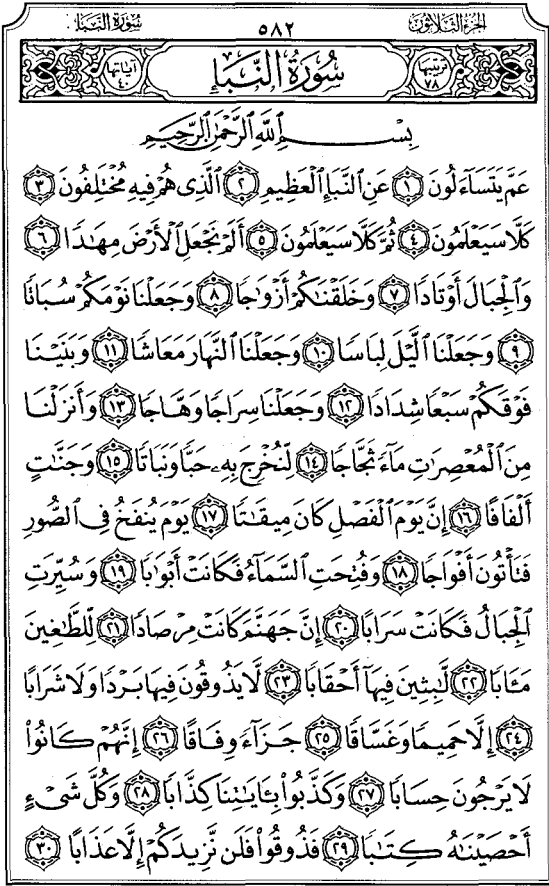 الجزء الثلاثون ٥٨٢ سورة النبإ
ترتيبها ٧٨ سُورَةُ النَّبَإِ آياتها ٤٠
بِسْمِ ٱللَّهِ ٱلرَّحْمَٰنِ ٱلرَّحِيمِ
عَمَّ يَتَسَآءَلُونَ ١ عَنِ ٱلنَّبَإِ ٱلْعَظِيمِ ٢ ٱلَّذِى هُمْ فِيهِ مُخْتَلِفُونَ ٣
كَلَّا سَيَعْلَمُونَ ٤ ثُمَّ كَلَّا سَيَعْلَمُونَ ٥ أَلَمْ نَجْعَلِ ٱلْأَرْضَ مِهَٰدًا ٦
وَٱلْجِبَالَ أَوْتَادًا ٧ وَخَلَقْنَٰكُمْ أَزْوَٰجًا ٨ وَجَعَلْنَا نَوْمَكُمْ سُبَاتًا
٩ وَجَعَلْنَا ٱلَّيْلَ لِبَاسًا ١٠ وَجَعَلْنَا ٱلنَّهَارَ مَعَاشًا ١١ وَبَنَيْنَا
فَوْقَكُمْ سَبْعًا شِدَادًا ١٢ وَجَعَلْنَا سِرَاجًا وَهَّاجًا ١٣ وَأَنزَلْنَا
مِنَ ٱلْمُعْصِرَٰتِ مَآءً ثَجَّاجًا ١٤ لِّنُخْرِجَ بِهِۦ حَبًّا وَنَبَاتًا ١٥ وَجَنَّٰتٍ
أَلْفَافًا ١٦ إِنَّ يَوْمَ ٱلْفَصْلِ كَانَ مِيقَٰتًا ١٧ يَوْمَ يُنفَخُ فِى ٱلصُّورِ
فَتَأْتُونَ أَفْوَاجًا ١٨ وَفُتِحَتِ ٱلسَّمَآءُ فَكَانَتْ أَبْوَٰبًا ١٩ وَسُيِّرَتِ
ٱلْجِبَالُ فَكَانَتْ سَرَابًا ٢٠ إِنَّ جَهَنَّمَ كَانَتْ مِرْصَادًا ٢١ لِّلطَّٰغِينَ
مَـَٔابًا ٢٢ لَّٰبِثِينَ فِيهَآ أَحْقَابًا ٢٣ لَّا يَذُوقُونَ فِيهَا بَرْدًا وَلَا شَرَابًا
٢٤ إِلَّا حَمِيمًا وَغَسَّاقًا ٢٥ جَزَآءً وِفَاقًا ٢٦ إِنَّهُمْ كَانُوا۟
لَا يَرْجُونَ حِسَابًا ٢٧ وَكَذَّبُوا۟ بِـَٔايَٰتِنَا كِذَّابًا ٢٨ وَكُلَّ شَىْءٍ
أَحْصَيْنَٰهُ كِتَٰبًا ٢٩ فَذُوقُوا۟ فَلَن نَّزِيدَكُمْ إِلَّا عَذَابًا ٣٠